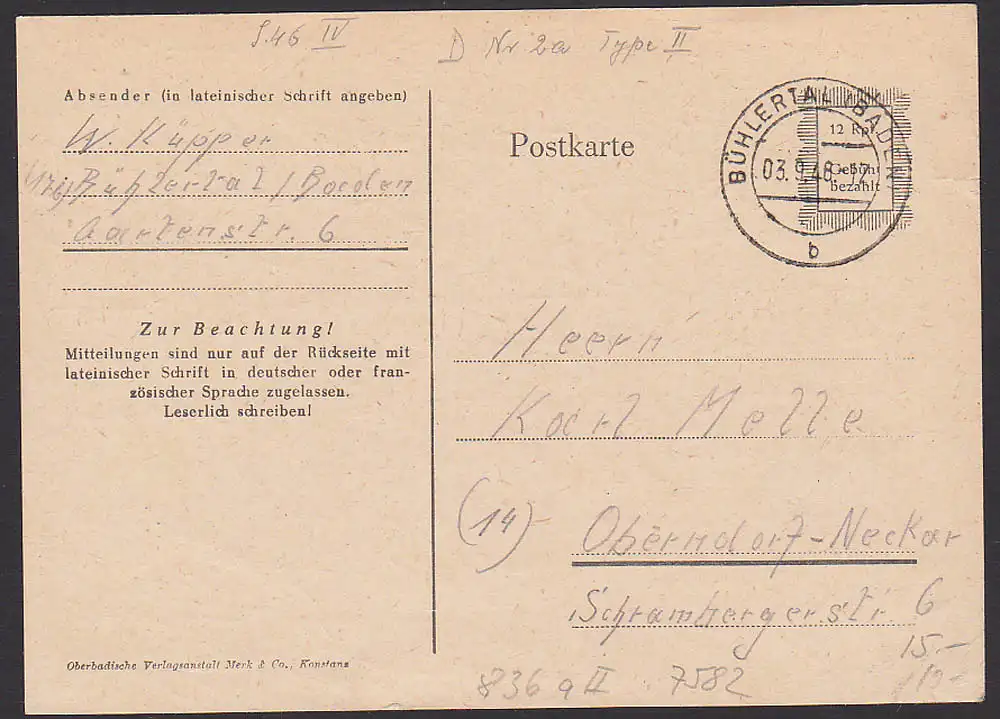 S.46 IV
D Nr 2a Type II
Absender (in lateinischer Schrift angeben)
W. Küpper
(17b) Bühlertal / Baden
Gartenstr. 6
Zur Beachtung!
Mitteilungen sind nur auf der Rückseite mit
lateinischer Schrift in deutscher oder fran-
zösischer Sprache zugelassen.
Leserlich schreiben!
Oberbadische Verlagsanstalt Merk & Co., Konstanz
Postkarte
BÜHLERTAL (BADEN)
03.9.46-17
b
12 Rpf
Gebühr
bezahlt
Herrn
Karl Melle
(14) Oberndorf-Neckar
Schrambergerstr. 6
15.-
836 a II 7582